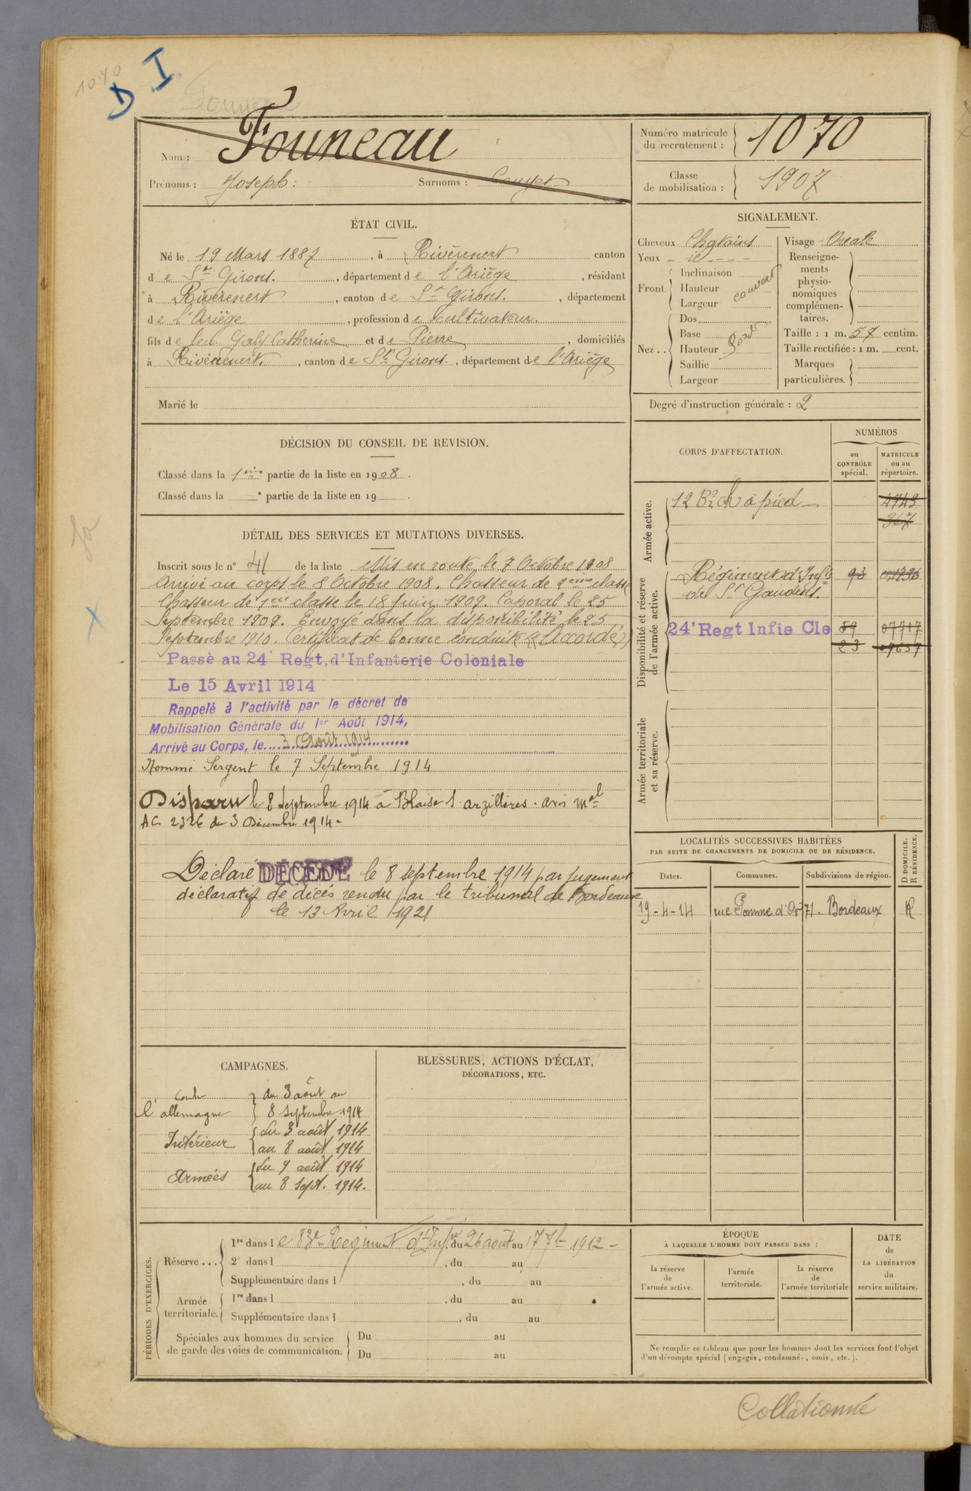 1070
D I
Nom : Founeau
Prénoms : Joseph. Surnoms :
Numéro matricule du recrutement : 1070
Classe de mobilisation : 1907
ÉTAT CIVIL.
Né le 19 Mars 1887, à Rivèrenert canton
d e St Girons, département de l'Ariège, résidant
à Rivèrenert, canton de St Girons, département
de l'Ariège, profession de cultivateur
fils de feu Galy Catherine et de Pierre, domiciliés
à Rivèrenert, canton de St Girons, département de l'Ariège
Marié le
SIGNALEMENT.
Cheveux Chatains Visage Ovale
Yeux
Front Inclinaison
Hauteur
Largeur
Nez .. Dos
Base
Hauteur
Saillie
Largeur
Renseignements physionomiques complémentaires.
Taille : 1 m. 57 centim.
Taille rectifiée : 1 m. cent.
Marques particulières.
Degré d'instruction générale : 2
DÉCISION DU CONSEIL DE REVISION.
Classé dans la 1ère partie de la liste en 1908.
Classé dans la e partie de la liste en 19
DÉTAIL DES SERVICES ET MUTATIONS DIVERSES.
Inscrit sous le n° 41 de la liste Mis en route le 7 Octobre 1908
Arrivé au corps le 8 Octobre 1908. Chasseur de 2ème classe
Chasseur de 1ère classe le 18 Juin 1909. Caporal le 25
Septembre 1909. Envoyé dans la disponibilité le 25
Septembre 1910. Certificat de bonne conduite "Accordé"
Passé au 24e Regt, d'Infanterie Coloniale
Le 15 Avril 1914
Rappelé à l'activité par le décret de
Mobilisation Générale du 1er Août 1914,
Arrivé au Corps, le 3 Août 1914
Nommé Sergent le 7 Septembre 1914
Disparu le 8 Septembre 1914 à Blaise s. arzillières. avis mel
AC 2326 du 3 Décembre 1914-
Déclaré DÉCÉDÉ le 8 septembre 1914 par jugement
déclaratif de décès rendu par le tribunal de Bordeaux
le 13 Avril 1921
CORPS D'AFFECTATION.
NUMÉROS
au CONTRÔLE spécial.
MATRICULE ou au répertoire.
Armée active.
12 Bon Ch à pied
Disponibilité et réserve de l'armée active.
Régiment d'Infie
de St Gaudens.
24e Regt Infie Cle 59
23
Armée territoriale et sa réserve.
LOCALITÉS SUCCESSIVES HABITÉES
PAR SUITE DE CHANGEMENTS DE DOMICILE OU DE RÉSIDENCE.
Dates. Communes. Subdivisions de région. D DOMICILE. R RÉSIDENCE.
19-4-14 rue Pomme d'Or 71. Bordeaux R
CAMPAGNES.
contre l'allemagne du 3 août au
8 septembre 1914
Intérieur du 3 août 1914
au 8 août 1914
Armées du 9 août 1914
au 8 Sept. 1914.
BLESSURES, ACTIONS D'ÉCLAT,
DÉCORATIONS, ETC.
PÉRIODES D'EXERCICES.
Réserve ... 1re dans le 83e Régiment d'Infie du 26 août au 17 7bre 1912 -
2e dans l , du au
Supplémentaire dans l , du au
Armée territoriale. 1re dans l , du au
Supplémentaire dans l , du au
Spéciales aux hommes du service
de garde des voies de communication. Du au
Du au
ÉPOQUE
À LAQUELLE L'HOMME DOIT PASSER DANS :
la réserve de l'armée active.
l'armée territoriale.
la réserve de l'armée territoriale
DATE de LA LIBÉRATION du service militaire.
Ne remplir ce tableau que pour les hommes dont les services font l'objet
d'un décompte spécial (engagés, condamnés, omis, etc.).
Collationné